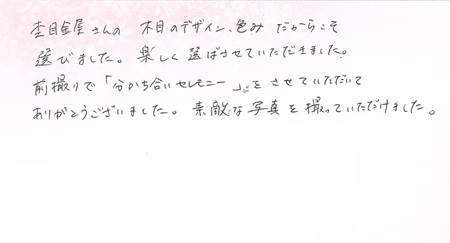 杢目金屋さんの 木目のデザイン、色みだからこそ
選びました。楽しく選ばさせていただきました。
前撮りで「分かち合いセレモニー」をさせていただいて
ありがとうございました。素敵な写真を撮っていただけました。